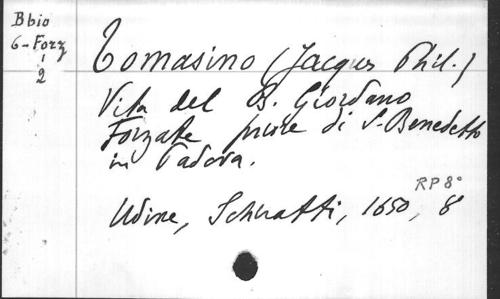 Bbio
6-Forz
1
2
Tomasino (Jacques Phil.)
Vita del B. Giordano
Forzate priore di S. Benedetto
in Padova.
RP 8°
Udine, Schiratti, 1650, 8°